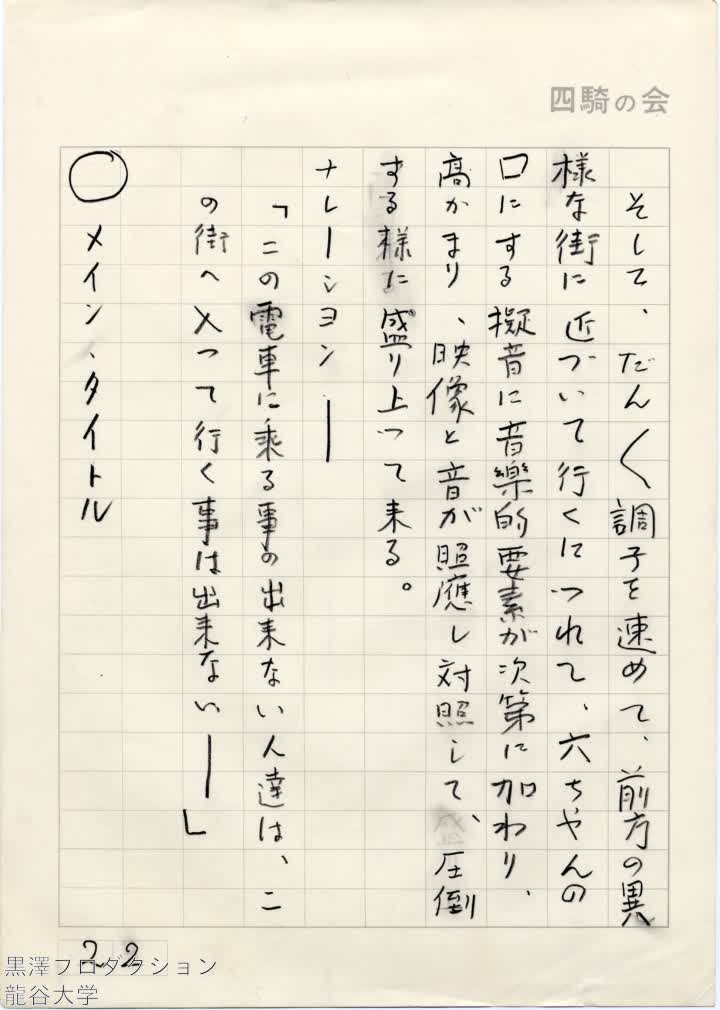 四騎の会
そして、だん〱調子を速めて、前方の異
様な街に近づいて行くにつれて、六ちやんの
口にする擬音に音樂的要素が次第に加わり、
高かまり、映像と音が照應し対照して、圧倒
する様に盛り上つて来る。
ナレーション──
「この電車に乘る事の出来ない人達は、こ
の街へ入つて行く事は出来ない──」
○メイン、タイトル
22
黒澤プロダクション
龍谷大学